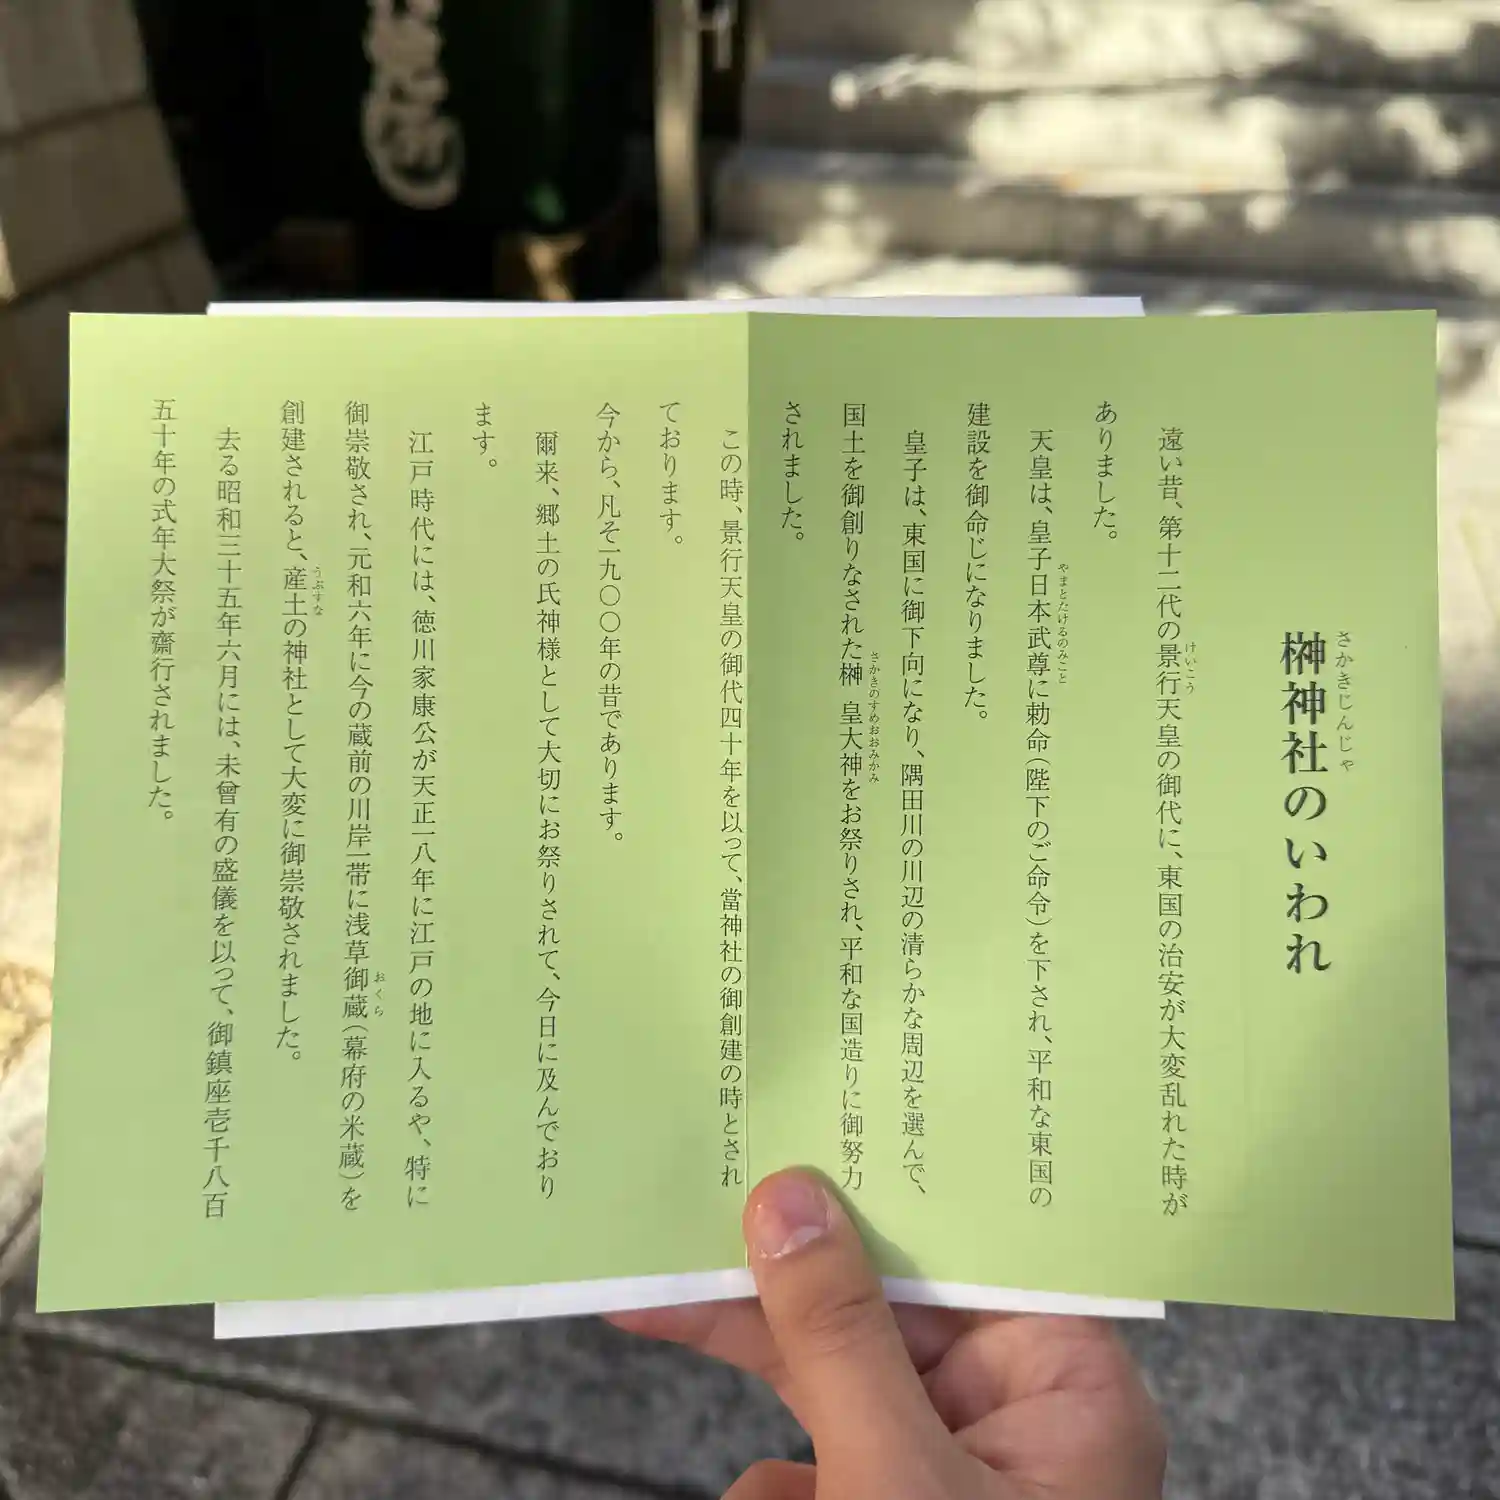 榊神社のいわれ
さかきじんじゃ
遠い昔、第十二代の景行天皇の御代に、東国の治安が大変乱れた時が
けいこう
ありました。
天皇は、皇子日本武尊に勅命(陛下のご命令)を下され、平和な東国の
やまとたけるのみこと
建設を御命じになりました。
皇子は、東国に御下向になり、隅田川の川辺の清らかな周辺を選んで、
国土を御創りなされた榊 皇大神をお祭りされ、平和な国造りに御努力
さかきのすめおおみかみ
されました。
この時、景行天皇の御代四十年を以って、當神社の御創建の時とされ
ております。
今から、凡そ一九〇〇年の昔であります。
爾来、郷土の氏神様として大切にお祭りされて、今日に及んでおり
ます。
江戸時代には、徳川家康公が天正一八年に江戸の地に入るや、特に
御崇敬され、元和六年に今の蔵前の川岸一帯に浅草御蔵(幕府の米蔵)を
おくら
創建されると、産土の神社として大変に御崇敬されました。
うぶすな
去る昭和三十五年六月には、未曾有の盛儀を以って、御鎮座壱千八百
五十年の式年大祭が齋行されました。